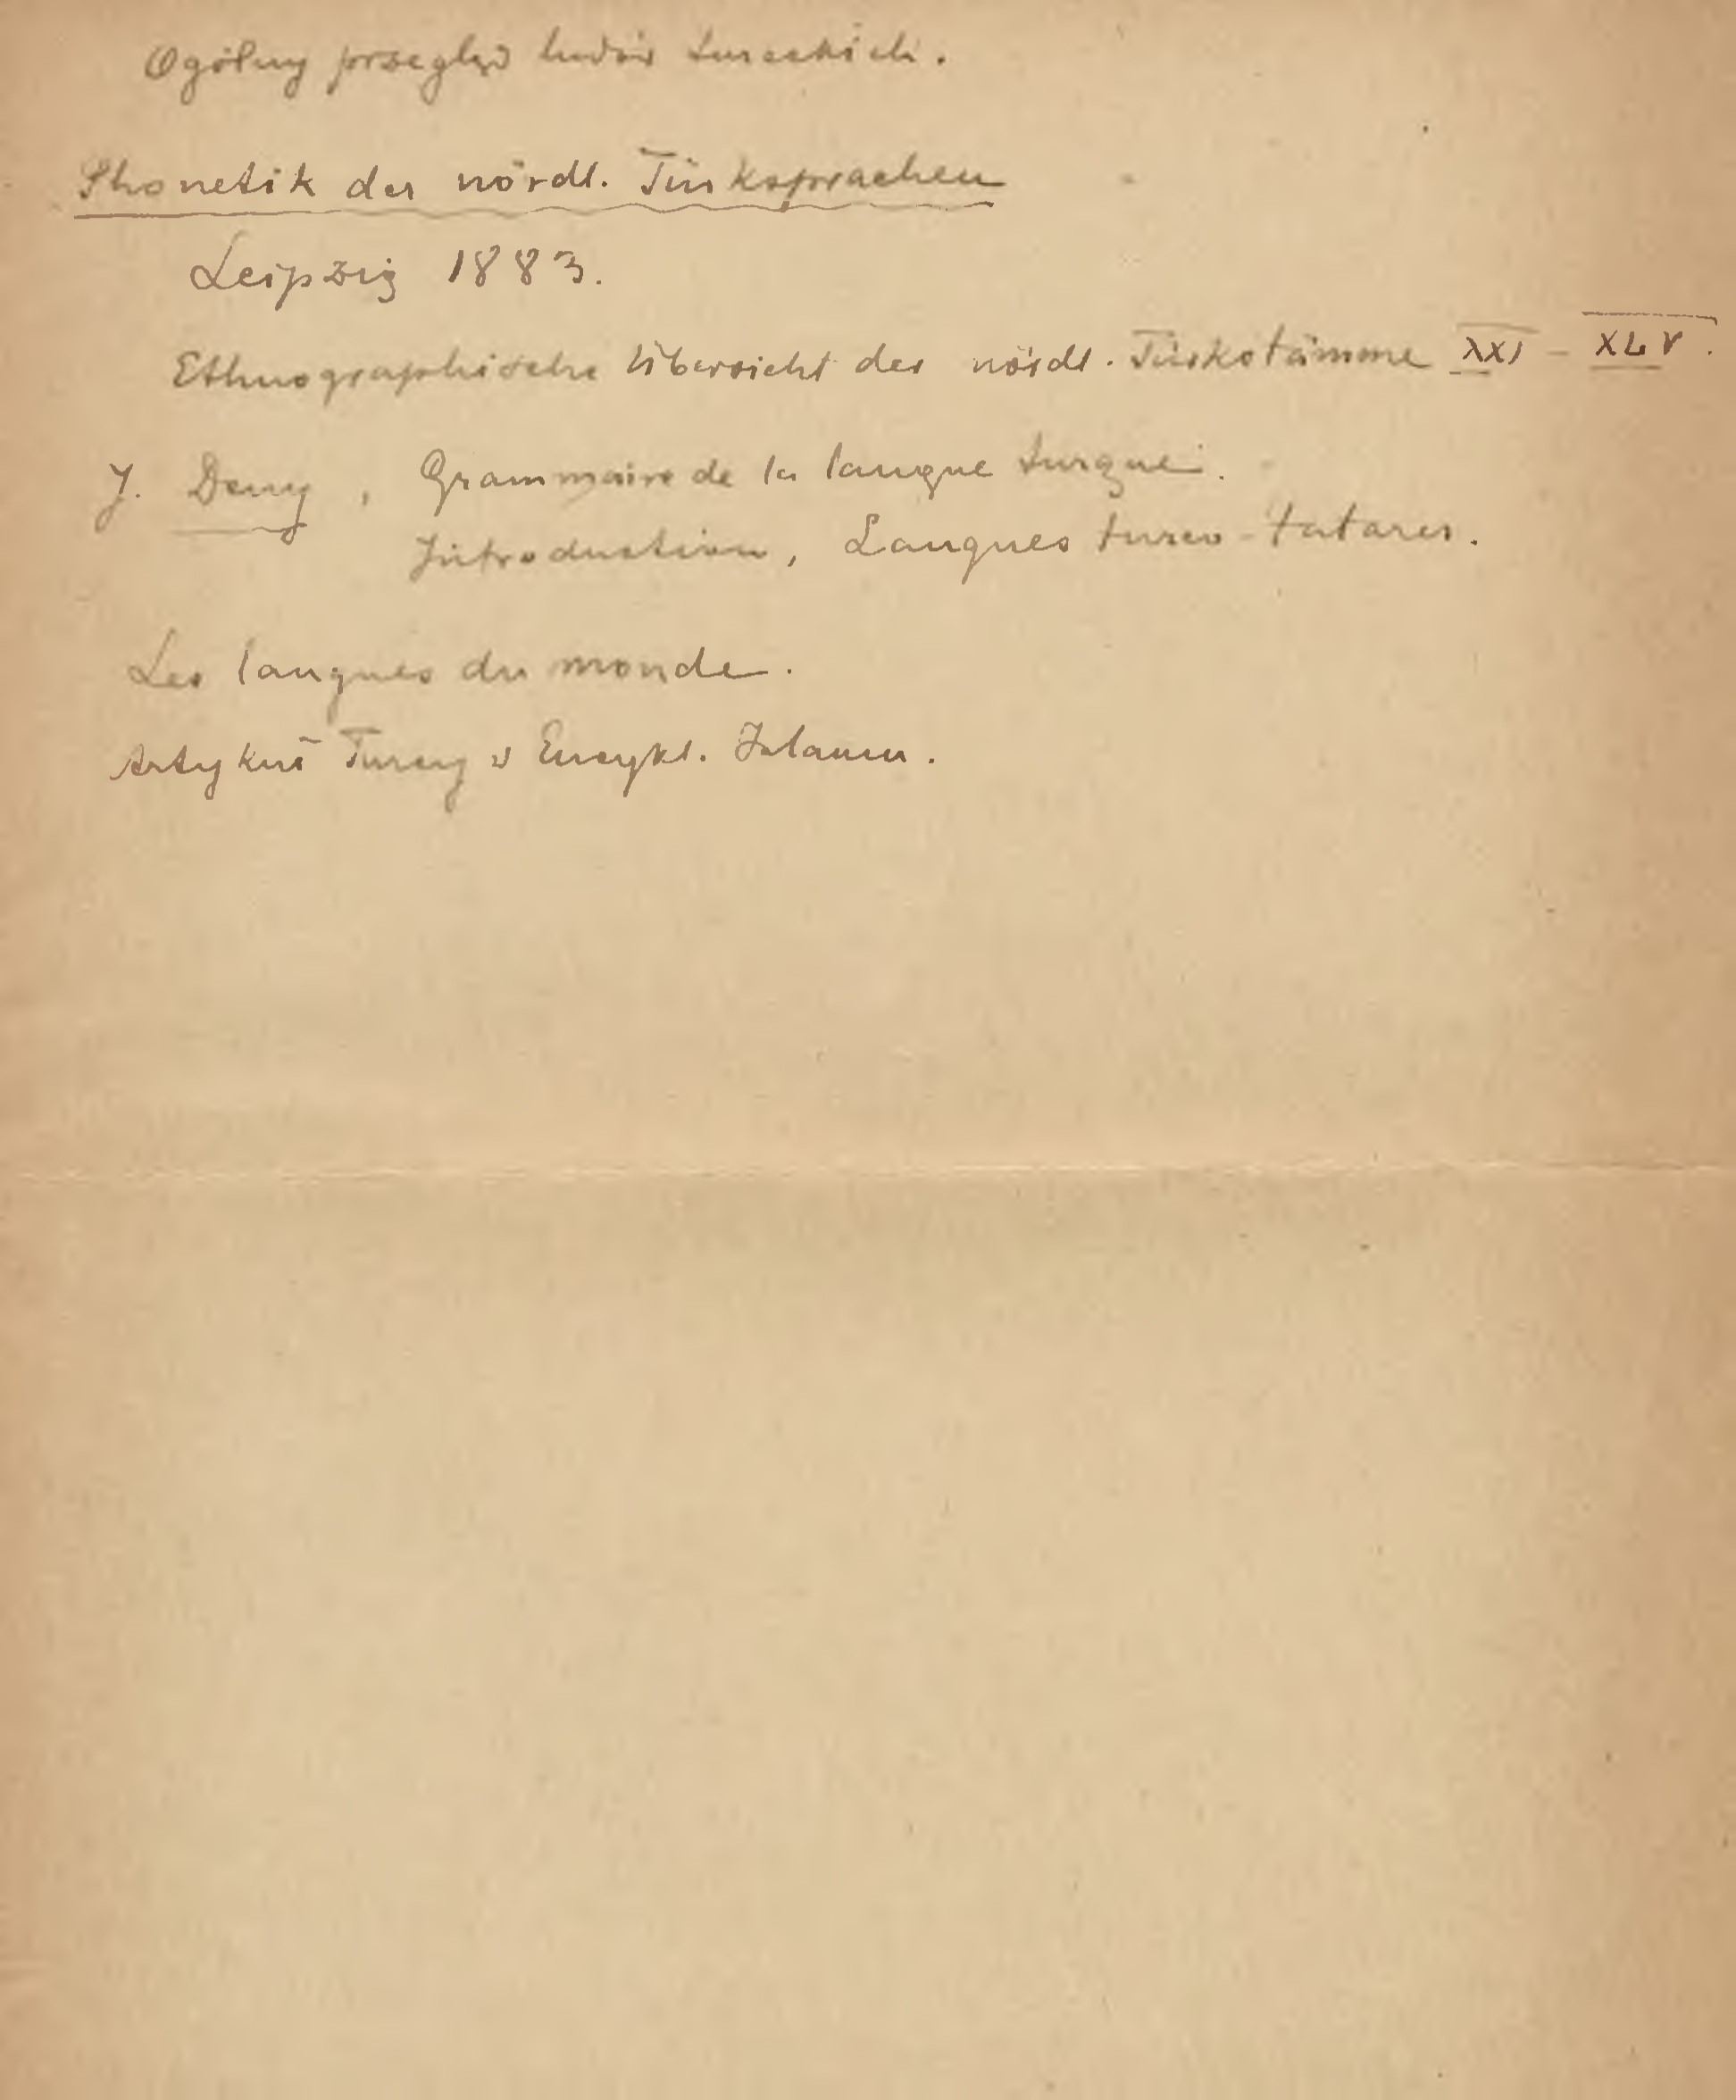 Ogólny przegląd ludów tureckich.
Phonetik der nördl. Türksprachen
Leipzig 1883.
Ethnographische Übersicht der nördl. Türkstämme XXI – XLV.
J. Deny, Grammaire de la langue turque.
Introduction, Langues turco-tatares.
Les langues du monde.
Artykuł Turcy w Encykl. Islamu.